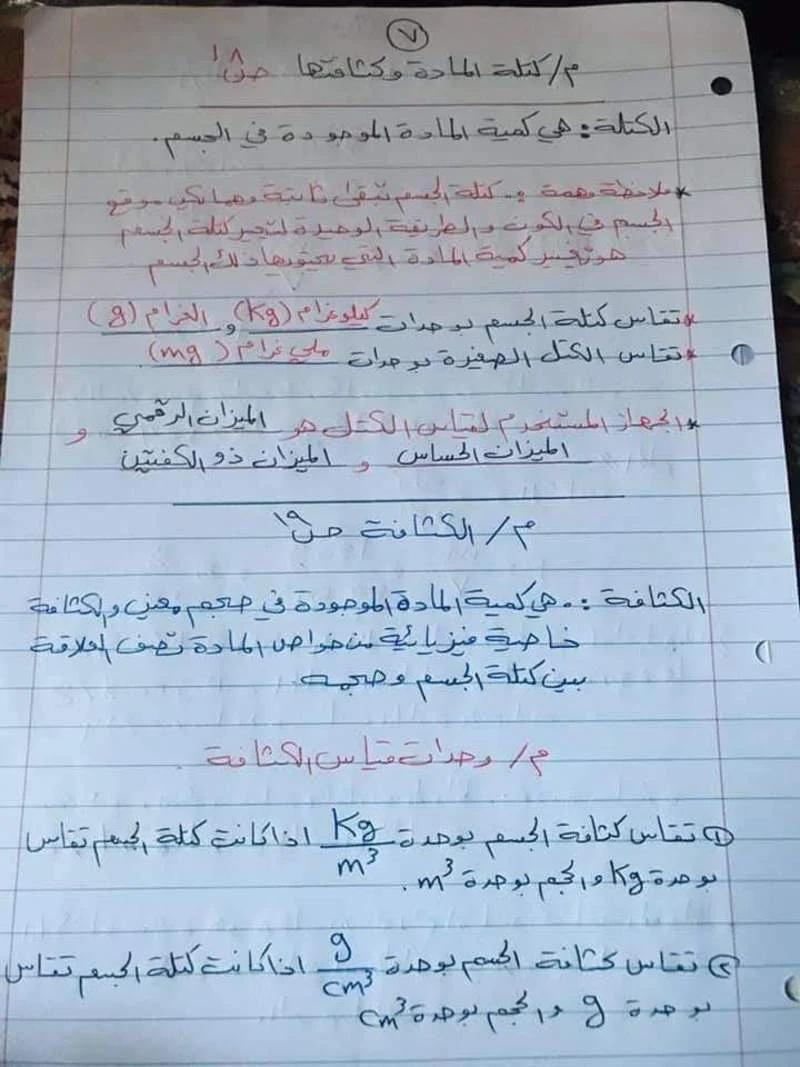 ٧
م/ كتلة المادة وكثافتها ص١٨
الكتلة : هي كمية المادة الموجودة في الجسم .
* ملاحظة مهمة :- كتلة الجسم تبقى ثابتة مهما يكن موقع
الجسم في الكون والطريقة الوحيدة لتغير كتلة الجسم
هو تغيير كمية المادة التي يحتويها ذلك الجسم
* تقاس كتلة الجسم بوحدات كيلو غرام (Kg) و الغرام (g)
* تقاس الكتل الصغيرة بوحدات ملي غرام (mg)
* الجهاز المستخدم لقياس الكتل هو الميزان الرقمي و
الميزان الحساس و الميزان ذو الكفتين
م/ الكثافة ص١٩
الكثافة :- هي كمية المادة الموجودة في حجم معين والكثافة
خاصية فيزيائية من خواص المادة تصف العلاقة
بين كتلة الجسم وحجمه
م/ وحدات قياس الكثافة
① تقاس كثافة الجسم بوحدة Kg/m³ اذا كانت كتلة الجسم تقاس
بوحدة Kg والحجم بوحدة m³ .
② تقاس كثافة الجسم بوحدة g/cm³ اذا كانت كتلة الجسم تقاس
بوحدة g والحجم بوحدة cm³